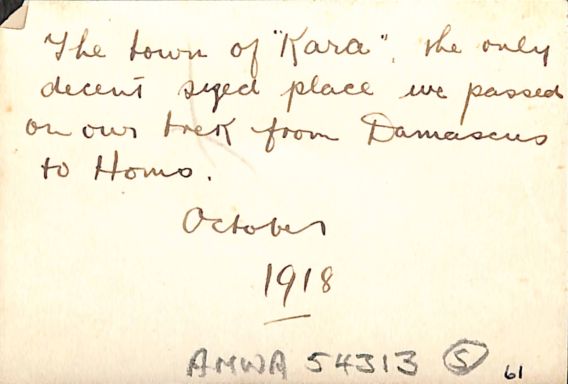 The town of "Kara", the only
decent sized place we passed
on our trek from Damascus
to Homs.
October
1918
AMWA 54313 (5)
61